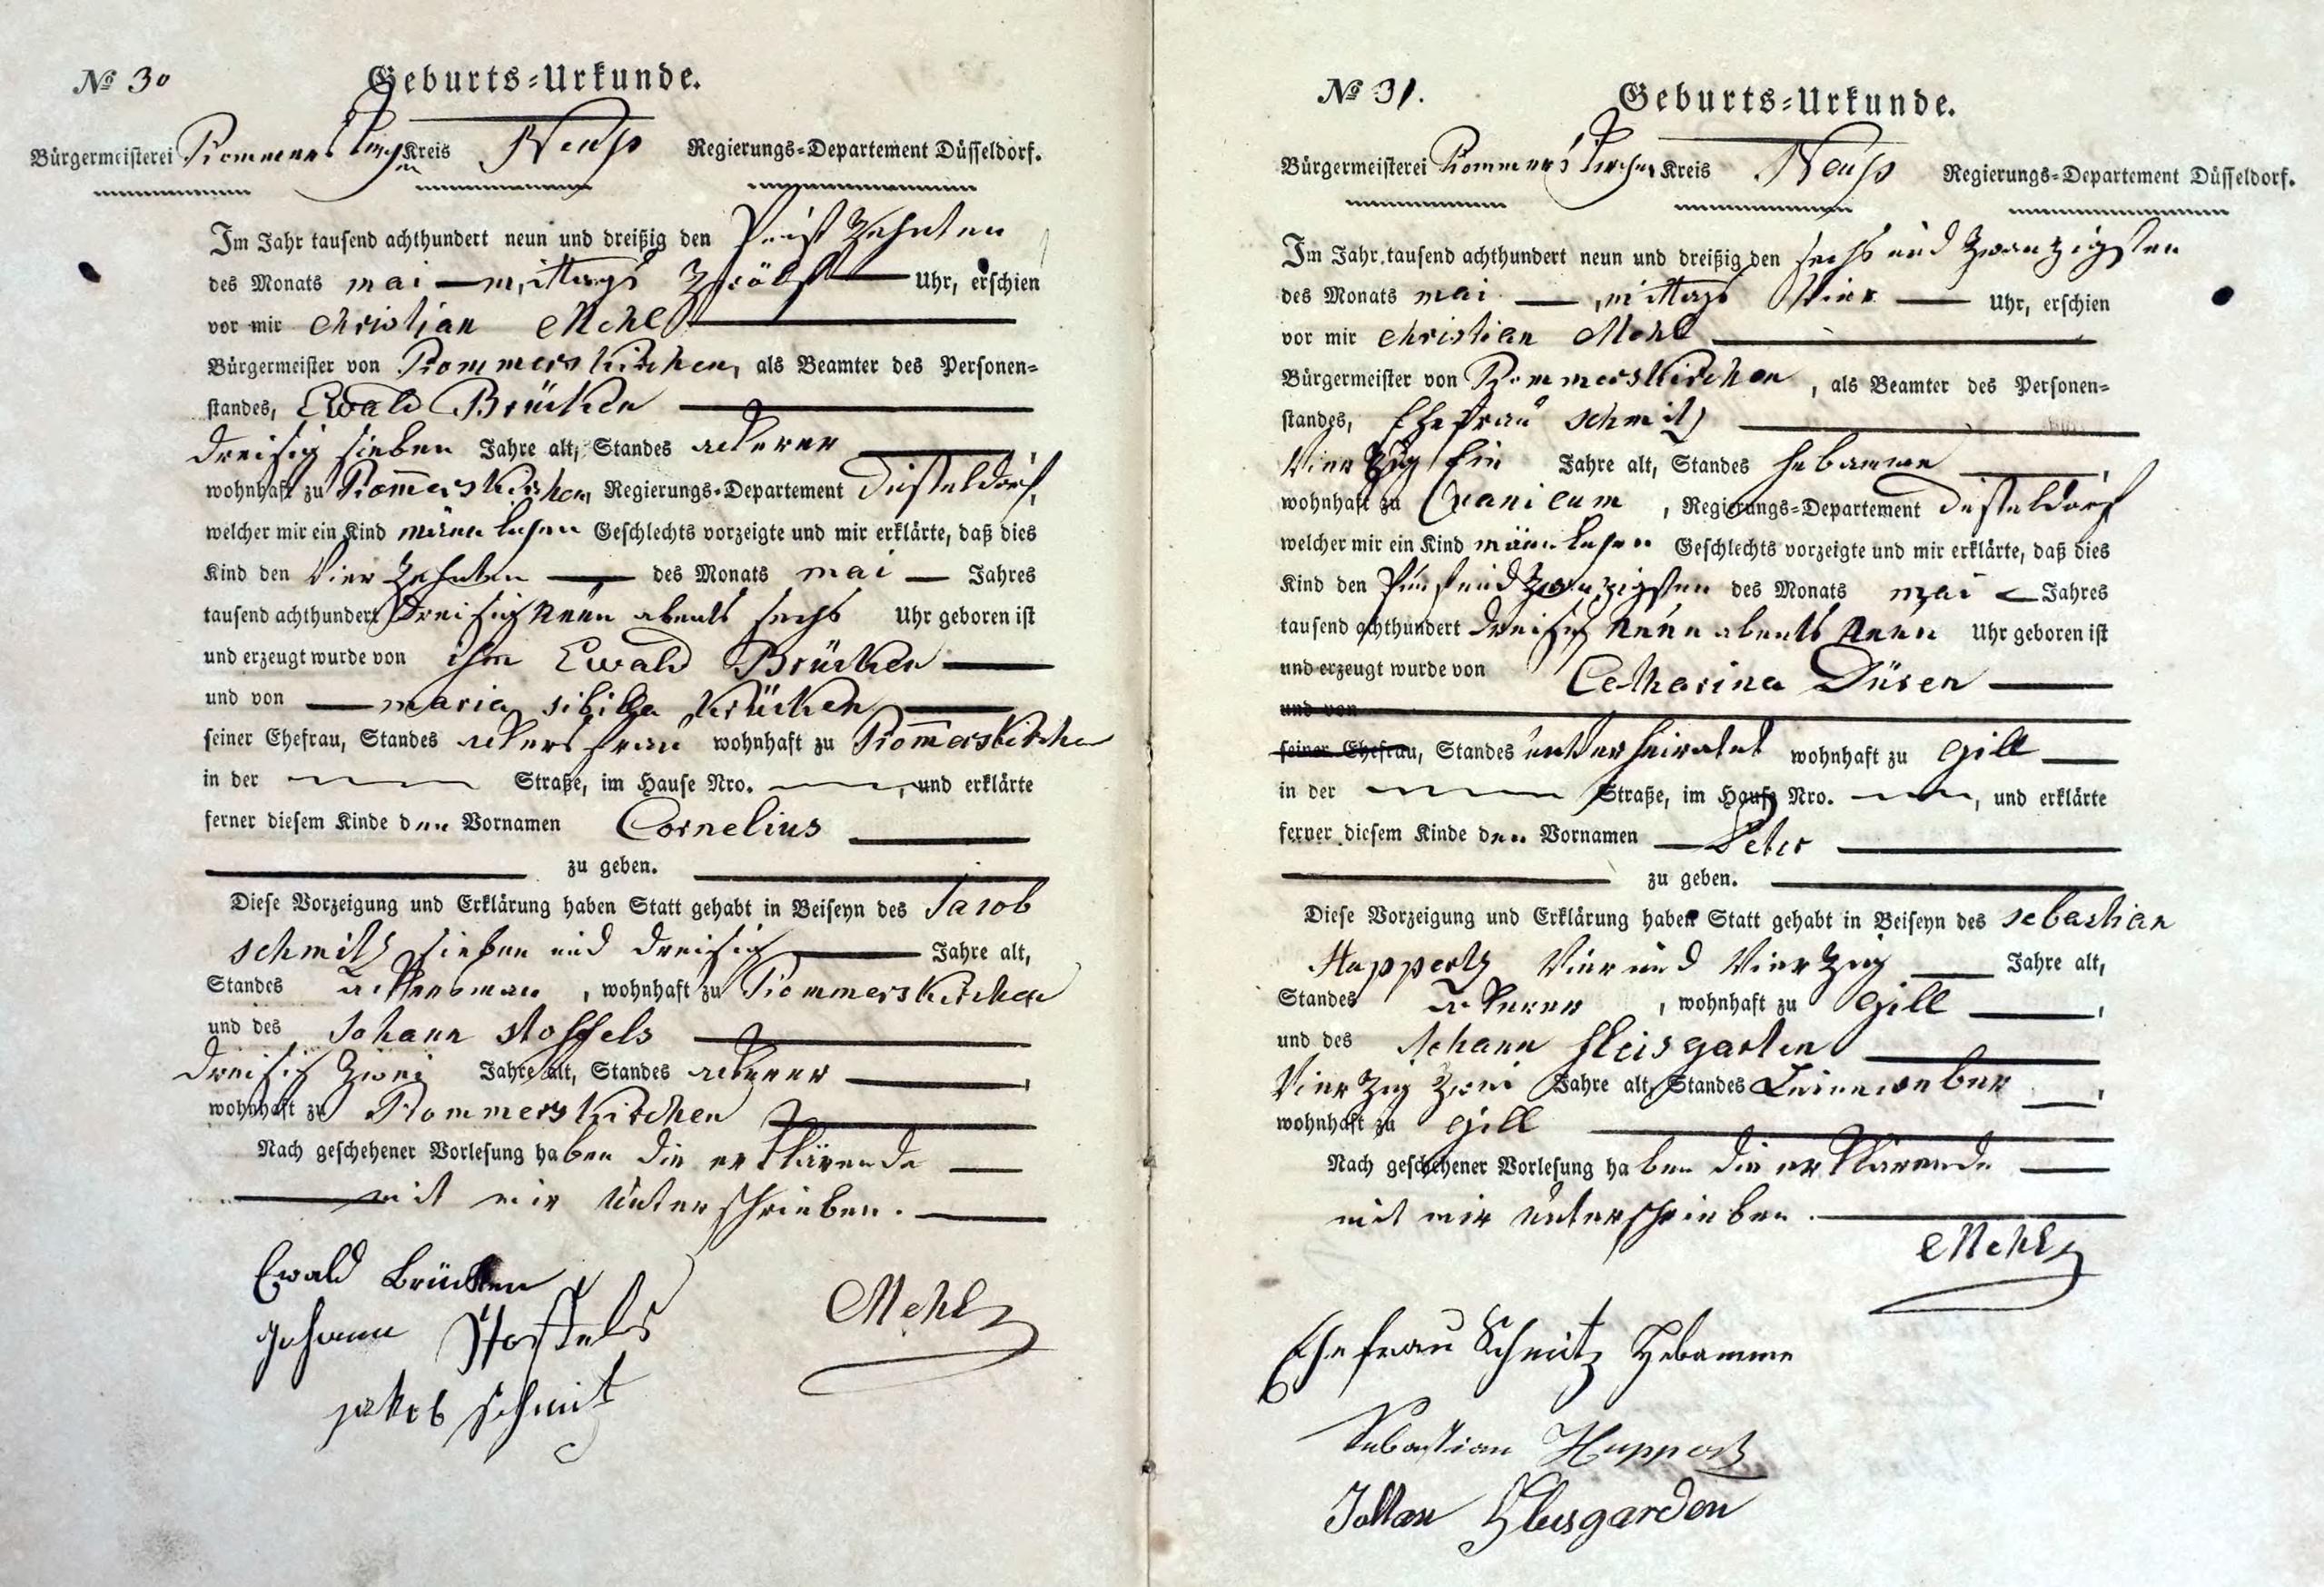 № 30
Geburts-Urkunde.
Bürgermeisterei Rommerskirchen Kreis Neuß Regierungs-Departement Düsseldorf.
Im Jahr tausend achthundert neun und dreißig den zehnten
des Monats mai — mittags zwölf — Uhr, erschien
vor mir christian Mehl
Bürgermeister von Rommerskirchen, als Beamter des Personen-
standes, Ewald Brücken
dreisig sieben Jahre alt, Standes ackerer
wohnhaft zu Rom̅erskirchen, Regierungs-Departement Düsseldorf,
welcher mir ein Kind männlichen Geschlechts vorzeigte und mir erklärte, daß dies
Kind den Vierzehnten — des Monats mai — Jahres
tausend achthundert dreisig neün abends sechs Uhr geboren ist
und erzeugt wurde von ihm Ewald Brücken
und von — maria sibilla Krücken
seiner Ehefrau, Standes ackersfrau wohnhaft zu Rom̅erskirchen
in der — Straße, im Hause Nro. —, und erklärte
ferner diesem Kinde den Vornamen Cornelius
zu geben.
Diese Vorzeigung und Erklärung haben Statt gehabt in Beiseyn des Jacob
schmitz sieben und dreisig — Jahre alt,
Standes ackersman, wohnhaft zu Rommerskirchen
und des Johann stoffels
dreisig zwei Jahre alt, Standes ackerer,
wohnhaft zu Rommerskirchen
Nach geschehener Vorlesung haben die erklärende
mit mir unterschrieben.
Ewald Brücken
Johann Stoffels
Mehl
jakob schmit
№ 31.
Geburts-Urkunde.
Bürgermeisterei Rommerskirchen Kreis Neuß Regierungs-Departement Düsseldorf.
Im Jahr tausend achthundert neun und dreißig den sechs und zwanzigsten
des Monats mai — mittags Vier — Uhr, erschien
vor mir christian Mehl
Bürgermeister von Rommerskirchen, als Beamter des Personen-
standes, Ehefrau schmitz
Vierzig Ein Jahre alt, Standes hebamme,
wohnhaft zu, Regierungs-Departement Düsseldorf
welcher mir ein Kind männlichen Geschlechts vorzeigte und mir erklärte, daß dies
Kind den fünf und zwanzigsten des Monats mai — Jahres
tausend achthundert dreisig neün abends neün Uhr geboren ist
und erzeugt wurde von Catharina Düren
und von
seiner Ehefrau, Standes unverheiratet wohnhaft zu Gill
in der — Straße, im Hause Nro. —, und erklärte
ferner diesem Kinde den Vornamen — Peter
zu geben.
Diese Vorzeigung und Erklärung haben Statt gehabt in Beiseyn des sebastian
Huppertz Vier und Vierzig — Jahre alt,
Standes Ackerer, wohnhaft zu Gill,
und des Johann fleisgarten
Vierzig zwei Jahre alt, Standes Leineweber,
wohnhaft zu Gill
Nach geschehener Vorlesung haben die erklärende
mit mir unterschrieben.
Mehl
Ehefrau Schmitz Hebamme
Sebastian Huppertz
Johan Flusgarden